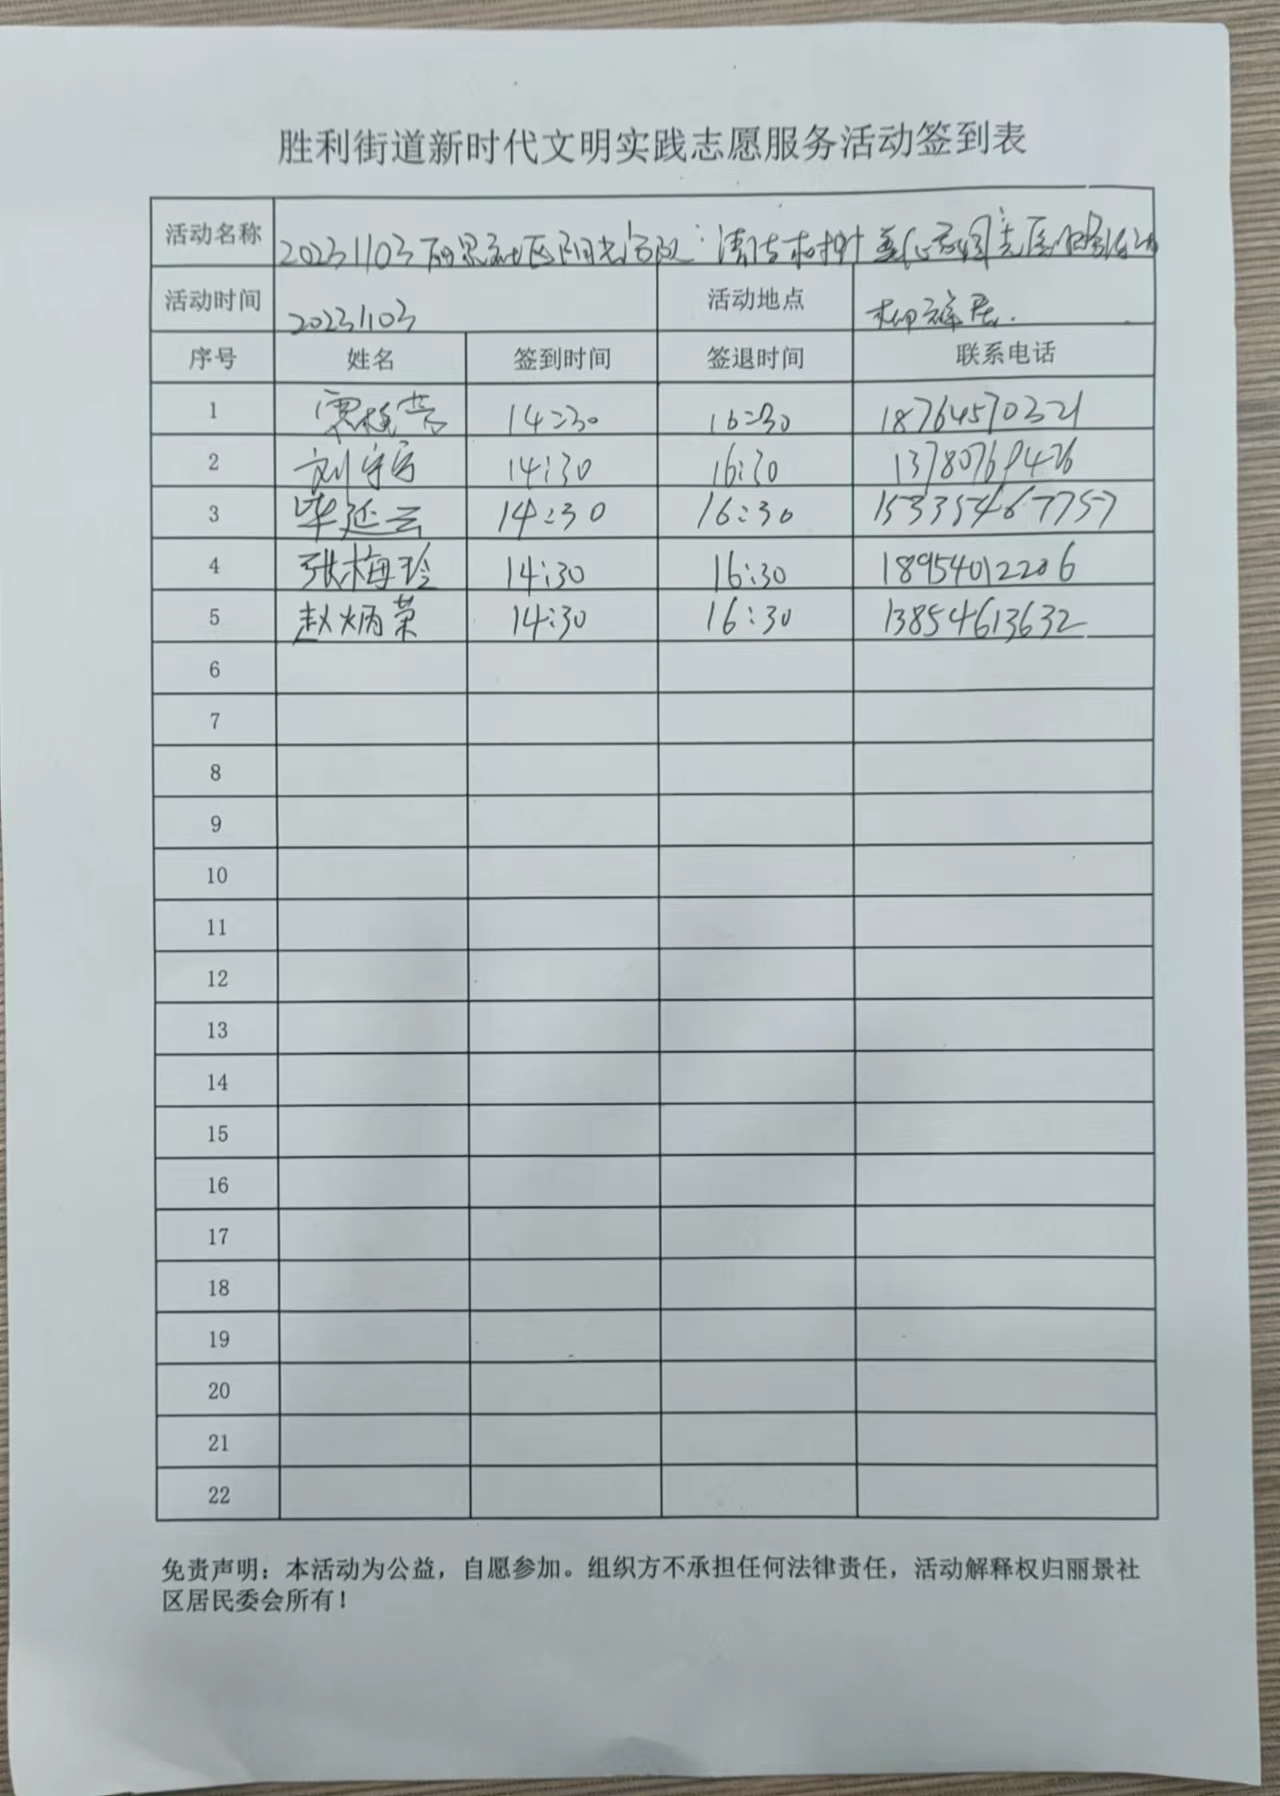 胜利街道新时代文明实践志愿服务活动签到表
活动名称 20231103丽景社区阳光家园:清洁树
活动时间 20231103 活动地点
序号 姓名 签到时间 签退时间 联系电话
1 14:30 16:30 18764570321
2 14:30 16:30 13780769426
3 毕延云 14:30 16:30 15335467757
4 张梅玲 14:30 16:30 18954012206
5 赵炳荣 14:30 16:30 13854613632
6
7
8
9
10
11
12
13
14
15
16
17
18
19
20
21
22
免责声明：本活动为公益，自愿参加。组织方不承担任何法律责任，活动解释权归丽景社
区居民委会所有！